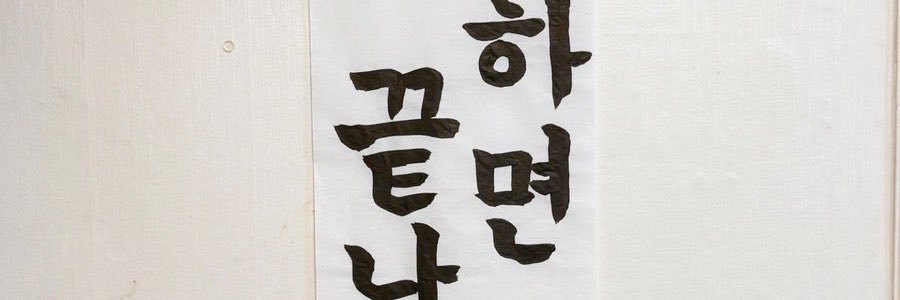 하면
끝나